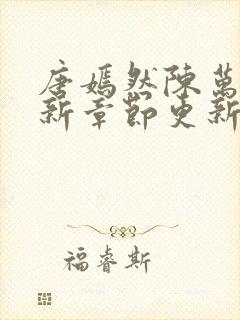 唐嫣然陳萬
新章節更新
福睿斯